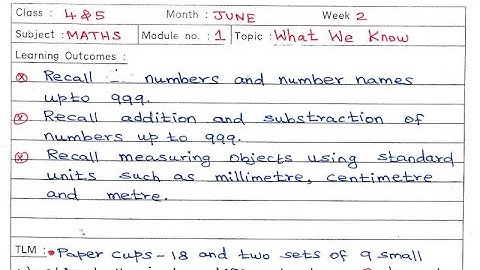 Class : 4 &5 Month : JUNE Week 2
Subject : MATHS Module no. : 1 Topic : What We Know
Learning Outcomes :
Recall numbers and number names
upto 999.
Recall addition and substraction of
numbers up to 999.
Recall measuring objects using standard
units such as millimetre, centimetre
and metre.
TLM : • Paper cups - 18 and two sets of 9 small